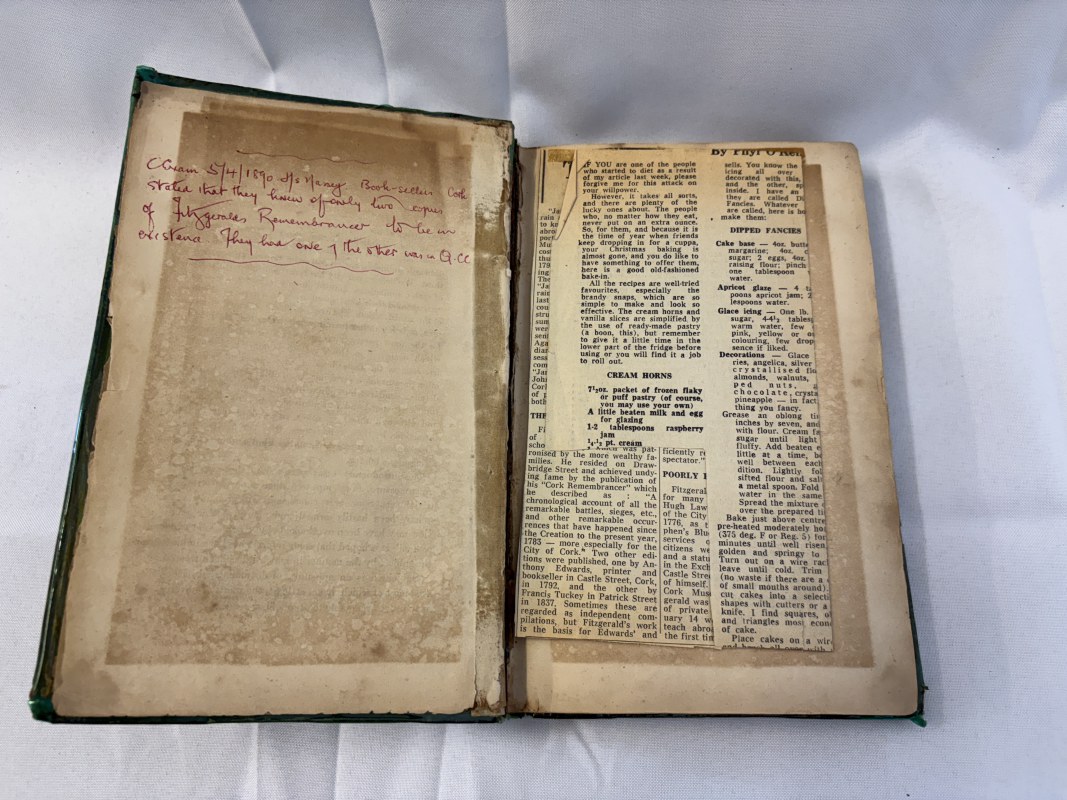 5/4/1890 Book-seller Cork
stated that they knew of only two copies
of Fitzgeralds Remembrancer to be in
existence They had one & the other was in Q.CC
IF YOU are one of the people
who started to diet as a result
of my article last week, please
forgive me for this attack on
your willpower.
However, it takes all sorts,
and there are plenty of the
lucky ones about. The people
who, no matter how they eat,
never put on an extra ounce.
So, for them, and because it is
the time of year when friends
keep dropping in for a cuppa,
your Christmas baking is
almost gone, and you do like to
have something to offer them,
here is a good old-fashioned
bake-in.
All the recipes are well-tried
favourites, especially the
brandy snaps, which are so
simple to make and look so
effective. The cream horns and
vanilla slices are simplified by
the use of ready-made pastry
(a boon, this), but remember
to give it a little time in the
lower part of the fridge before
using or you will find it a job
to roll out.
CREAM HORNS
7½oz. packet of frozen flaky
or puff pastry (of course,
you may use your own)
A little beaten milk and egg
for glazing
1-2 tablespoons raspberry
jam
¼-½ pt. cream
was pat-
ronised by the more wealthy fa-
milies. He resided on Draw-
bridge Street and achieved undy-
ing fame by the publication of
his "Cork Remembrancer" which
he described as : "A
chronological account of all the
remarkable battles, sieges, etc.,
and other remarkable occur-
rences that have happened since
the Creation to the present year,
1783 — more especially for the
City of Cork." Two other edi-
tions were published, one by An-
thony Edwards, printer and
bookseller in Castle Street, Cork,
in 1792, and the other by
Francis Tuckey in Patrick Street
in 1837. Sometimes these are
regarded as independent com-
pilations, but Fitzgerald's work
is the basis for Edwards' and
ficiently
spectator."
POORLY
Fitzgeral
for many
Hugh Law
of the City
1776, as
phen's Blu
services
citizens we
and a statu
in the Exch
Castle Stree
of himself.
Cork Mus
gerald was
of private
uary 14 w
teach abro
the first tim
By Phyl O'Ken
sells. You know the
icing all over
decorated with this,
and the other,
inside. I have an
they are called Di
Fancies. Whatever
are called, here is ho
make them:
DIPPED FANCIES
Cake base — 4oz. butte
margarine; 4oz.
sugar; 2 eggs, 4oz.
raising flour; pinch
one tablespoon
water.
Apricot glaze — 4 ta
poons apricot jam; 2
lespoons water.
Glace icing — One lb.
sugar, 4-4½ tables
warm water, few
pink, yellow or o
colouring, few drop
sence if liked.
Decorations — Glace
ries, angelica, silver
crystallised
almonds, walnuts,
ped nuts,
chocolate, crysta
pineapple — in fact
thing you fancy.
Grease an oblong ti
inches by seven, and
with flour. Cream fa
sugar until light
fluffy. Add beaten e
little at a time, be
well between each
dition. Lightly fol
sifted flour and salt
a metal spoon. Fold
water in the same
Spread the mixture
over the prepared ti
Bake just above centre
pre-heated moderately ho
(375 deg. F or Reg. 5) for
minutes until well risen
golden and springy to
Turn out on a wire rac
leave until cold. Trim
(no waste if there are a
of small mouths around).
cut cakes into a selecti
shapes with cutters or a
knife. I find squares,
and triangles most econ
of cake.
Place cakes on a wire